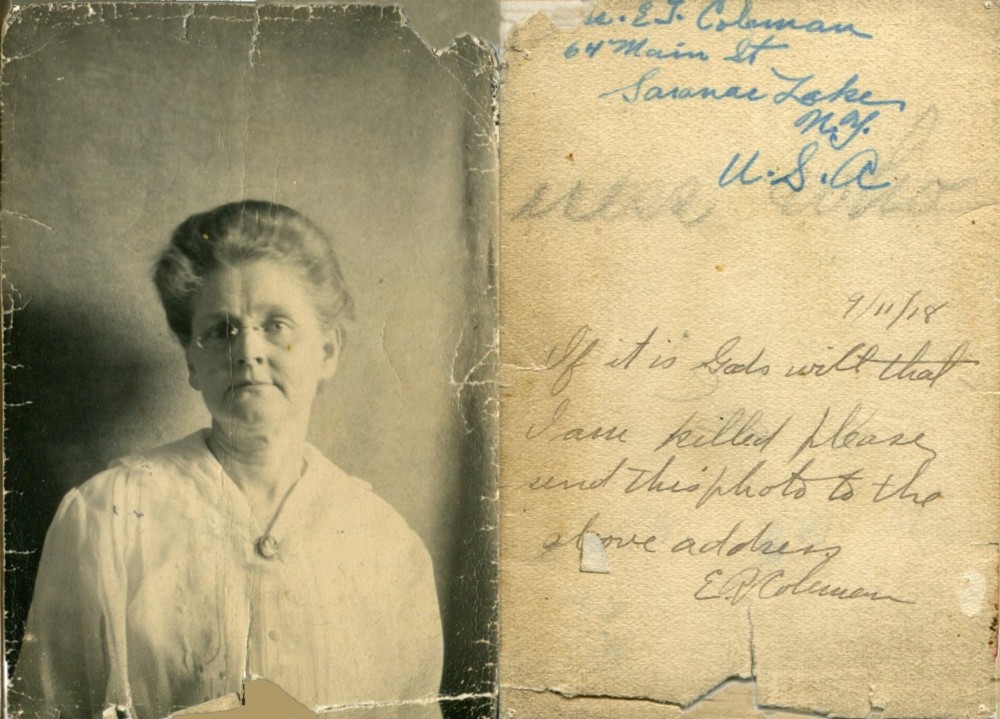 E.J. Coleman
64 Main St
Saranac Lake
N.Y.
U.S.A
9/11/18
If it is Gods will that
I am killed please
send this photo to the
above address
E.P Coleman